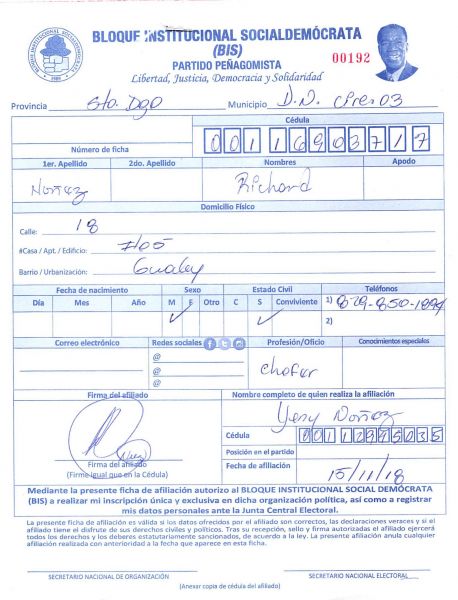 BLOQUE INSTITUCIONAL SOCIALDEMÓCRATA
(BIS)
PARTIDO PEÑAGOMISTA
00192
Libertad, Justicia, Democracia y Solidaridad
Provincia Sto. Dgo Municipio D.N. Circ 03
Cédula
Número de ficha 001 1690371 7
1er. Apellido 2do. Apellido Nombres Apodo
Nuñez Richard
Domicilio Físico
Calle: 18
#Casa / Apt. / Edificio: #105
Barrio / Urbanización: Gualey
Fecha de nacimiento Sexo Estado Civil Teléfonos
Día Mes Año M F Otro C S Conviviente 1) 829-850-1894
✓ ✓ 2)
Correo electrónico Redes sociales Profesión/Oficio Conocimientos especiales
@
@ Chofer
@
Firma del afiliado Nombre completo de quien realiza la afiliación
Yesy Nuñez
Cédula 001 1294503 5
Posición en el partido
Firma del afiliado
(Firme igual que en la Cédula)
Fecha de afiliación 15/11/18
Mediante la presente ficha de afiliación autorizo al BLOQUE INSTITUCIONAL SOCIAL DEMÓCRATA
(BIS) a realizar mi inscripción única y exclusiva en dicha organización política, así como a registrar
mis datos personales ante la Junta Central Electoral.
La presente ficha de afiliación es válida si los datos ofrecidos por el afiliado son correctos, las declaraciones veraces y si el
afiliado tiene el disfrute de sus derechos civiles y políticos. Tras su recepción, sello y firma autorizados el afiliado ejercerá
todos los derechos y los deberes estatutariamente sancionados, de acuerdo a la ley. La presente afiliación anula cualquier
afiliación realizada con anterioridad a la fecha que aparece en esta ficha.
SECRETARIO NACIONAL DE ORGANIZACIÓN SECRETARIO NACIONAL ELECTORAL
(Anexar copia de cédula del afiliado)